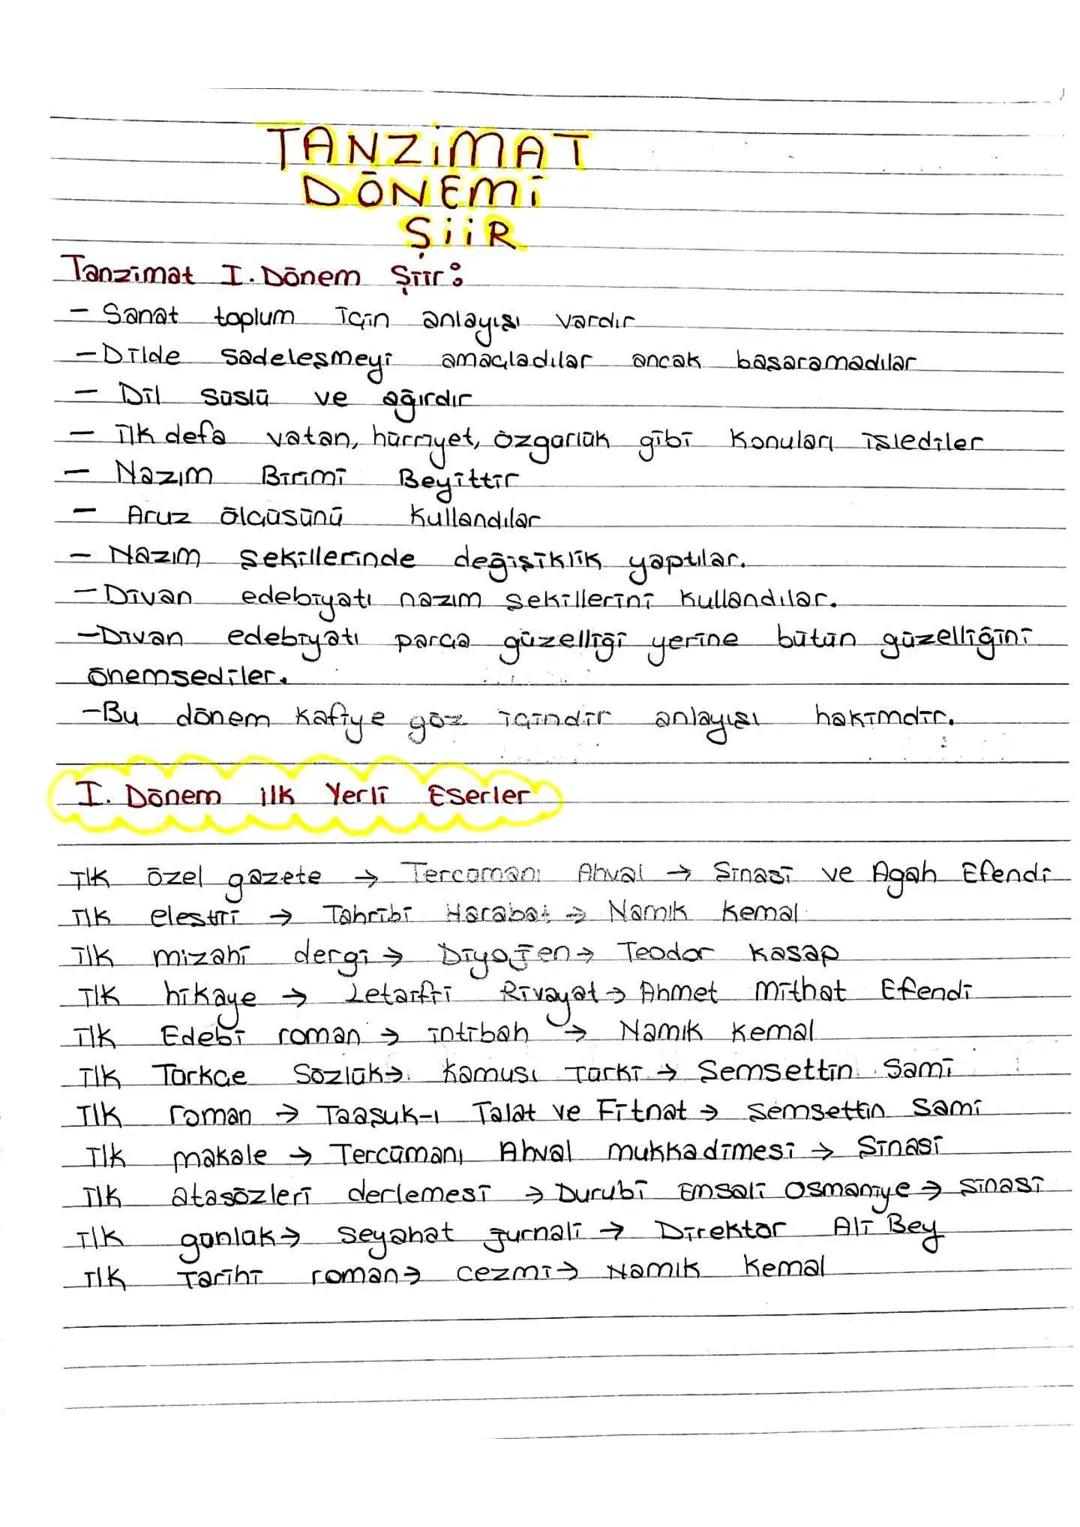 TANZİMAT
DÖNEMİ
ŞİİR
Tanzimat I. Dönem Şiir:
- Sanat toplum için anlayışı vardır
- Dilde sadeleşmeyi amaçladılar ancak başaramadılar
- Dil süslü ve ağırdır
- ilk defa vatan, hürriyet, özgürlük gibi konuları işlediler
- Nazım Birimi Beyittir
- Aruz ölçüsünü kullandılar
- Nazım şekillerinde değişiklik yaptılar.
- Divan edebiyatı nazım şekillerini kullandılar.
- Divan edebiyatı parça güzelliği yerine bütün güzelliğini
önemsediler.
- Bu dönem kafiye göz içindir anlayışı hakimdir.
I. Dönem ilk Yerli Eserler
İlk özel gazete → Tercümanı Ahval → Şinasi ve Agah Efendi
İlk eleştiri → Tahribi Harabat → Namık Kemal
İlk mizahi dergi → Diyojen → Teodor Kasap
İlk hikaye → Letaifti Rivayat → Ahmet Mithat Efendi
İlk Edebi roman → intibah → Namık Kemal
İlk Türkçe Sözlük → Kamusı Türki → Şemsettin Sami
İlk roman → Taaşuk-ı Talat ve Fitnat → Şemsettin Sami
İlk makale → Tercümanı Ahval mukkadimesi → Şinasi
İlk atasözleri derlemesi → Durubi Emsali Osmaniye → Şinasi
İlk günlük → Seyahat Jurnali → Direktör Ali Bey
İlk Tarihi roman → Cezmi → Namık Kemal